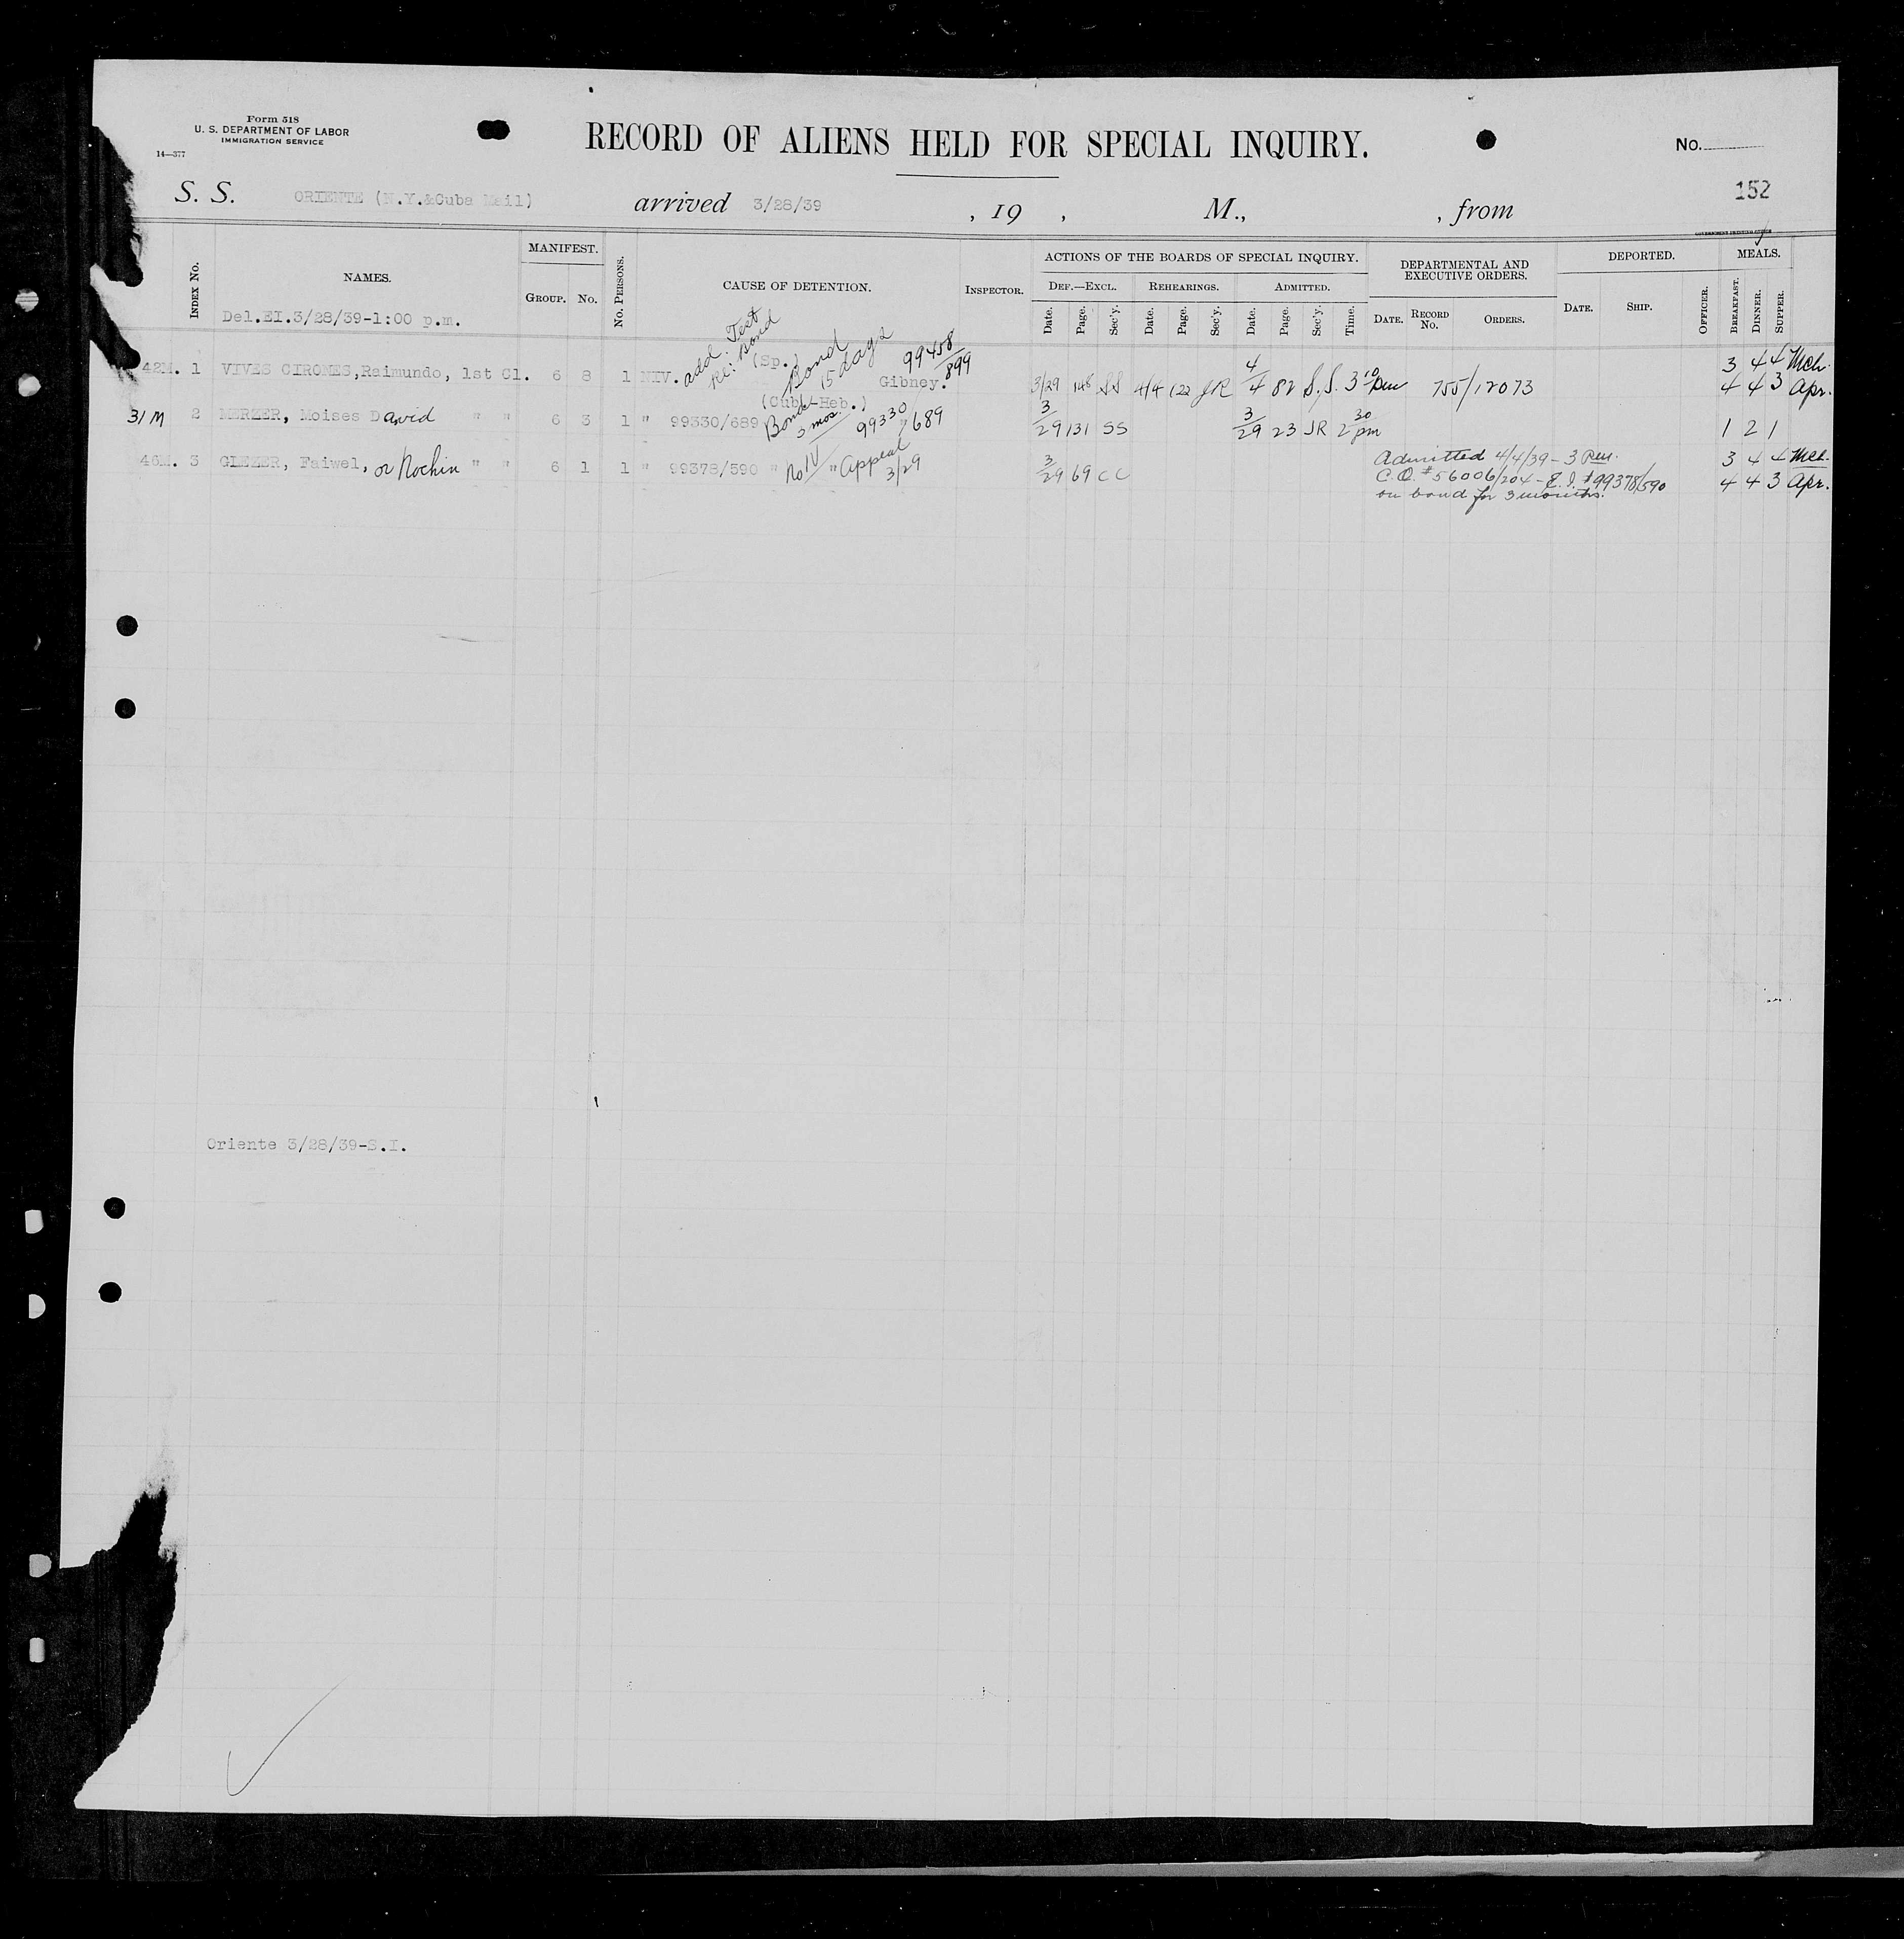 Form 518
U. S. DEPARTMENT OF LABOR
IMMIGRATION SERVICE
14—377
RECORD OF ALIENS HELD FOR SPECIAL INQUIRY.
No.
152
S. S. ORIENTE (N.Y.&Cuba Mail) arrived 3/28/39 , 19 , M., , from
GOVERNMENT PRINTING OFFICE
INDEX No. NAMES. MANIFEST. GROUP. No. No. PERSONS. CAUSE OF DETENTION. INSPECTOR. ACTIONS OF THE BOARDS OF SPECIAL INQUIRY. DEPARTMENTAL AND EXECUTIVE ORDERS. DEPORTED. MEALS.
DEF.—EXCL. REHEARINGS. ADMITTED.
Date. Page. Sec'y. Date. Page. Sec'y. Date. Page. Sec'y. Time. DATE. RECORD No. ORDERS. DATE. SHIP. OFFICER. BREAKFAST. DINNER. SUPPER.
Del.EI.3/28/39-1:00 p.m.
add. Test re: Bond
(Sp.) Bond 15 days 99458/899
42M. 1 VIVES CIROMES,Raimundo, 1st Cl. 6 8 1 NIV. Gibney. 3/29 148 SS 4/4 122 JR 4/4 82 S.S. 3 10 pm 755/12073 3 4 4 Mch.
4 4 3 Apr.
(Cuba-Heb.)
31 M 2 MERZER, Moises David " " 6 3 1 " 99330/689 Bond 3 mos. 99330/689 3/29 131 SS 3/29 23 JR 2 30 pm 1 2 1
46M. 3 GLEZER, Faiwel, or Nochin " " 6 1 1 " 99378/590 " No IV " Appeal 3/29 3/29 69 CC Admitted 4/4/39 - 3 pm. 3 4 4 Mch.
C.O. #56006/204 - E.I. #99378/590 4 4 3 Apr.
on bond for 3 months.
Oriente 3/28/39-S.I.